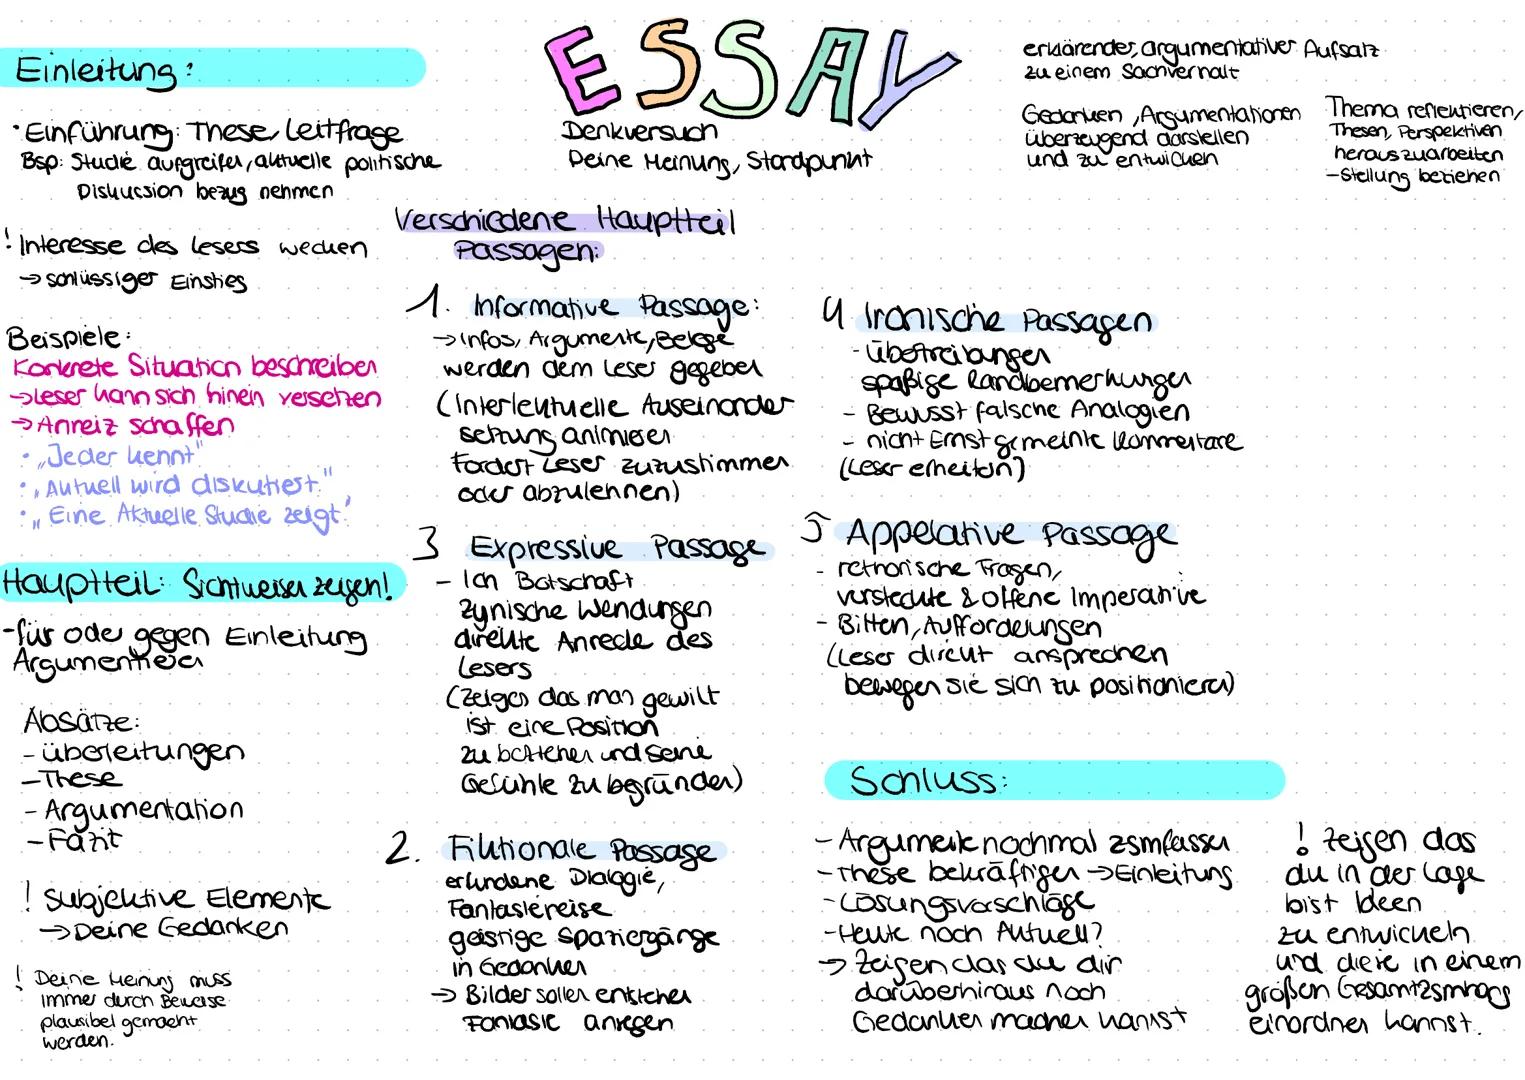 ESSAY
Denkversuch
Deine Meinung, Standpunkt
erklärender, argumentativer Aufsatz
zu einem Sachverhalt
Gedanken, Argumentationen
überzeugend darstellen
und zu entwickeln
Thema reflektieren,
Thesen, Perspektiven
herauszuarbeiten
-Stellung beziehen
Einleitung:
• Einführung: These, Leitfrage
Bsp: Studie aufgreifen, aktuelle politische
Diskussion bezug nehmen
! Interesse des Lesers wecken
→ schlüssiger Einstieg
Beispiele:
Konkrete Situation beschreiben
→Leser kann sich hinein versetzen
→ Anreiz schaffen
• „Jeder kennt"
• „Aktuell wird diskutiert."
• „Eine Aktuelle Studie zeigt."
Hauptteil: Sichtweisen zeigen!
-für oder gegen Einleitung
Argumentieren
Absätze:
- überleitungen
-These
- Argumentation
- Fazit
! Subjektive Elemente
→ Deine Gedanken
! Deine Meinung muss
immer durch Beweise
plausibel gemacht
werden.
Verschiedene Hauptteil
Passagen:
1. Informative Passage:
→ Infos, Argumente, Belege
werden dem Leser gegeben
(Interlektuelle Auseinander
setzung animieren
fordert Leser zuzustimmen
oder abzulehnen)
3 Expressive Passage
- Ich Botschaft
zynische Wendungen
direkte Anrede des
Lesers
(zeigen das man gewilt
ist eine Position
zu beziehen und seine
Gefühle zu begründen)
2. Fiktionale Passage
erfundene Dialogie,
Fantasiereise
geistige Spaziergänge
in Gedanken
→ Bilder sollen entstehen
Fantasie anregen
4 Ironische Passagen
- Übertreibungen
spaßige Randbemerkungen
- Bewusst falsche Analogien
- nicht Ernst gemeinte Kommentare
(Leser erheitern)
5 Appelative Passage
- rethorische Fragen,
versteckte & offene Imperative
- Bitten, Aufforderungen
(Leser direkt ansprechen
bewegen sie sich zu positionieren)
Schluss:
- Argumente nochmal zsmfassen
- These bekräftigen → Einleitung
- Lösungsvorschläge
- Heute noch Aktuell?
→ Zeigen das du dir
darüberhinaus noch
Gedanken machen kannst
! Zeigen das
du in der Lage
bist Ideen
zu entwickeln
und diese in einem
großen Gesamtzsmhang
einordnen kannst.